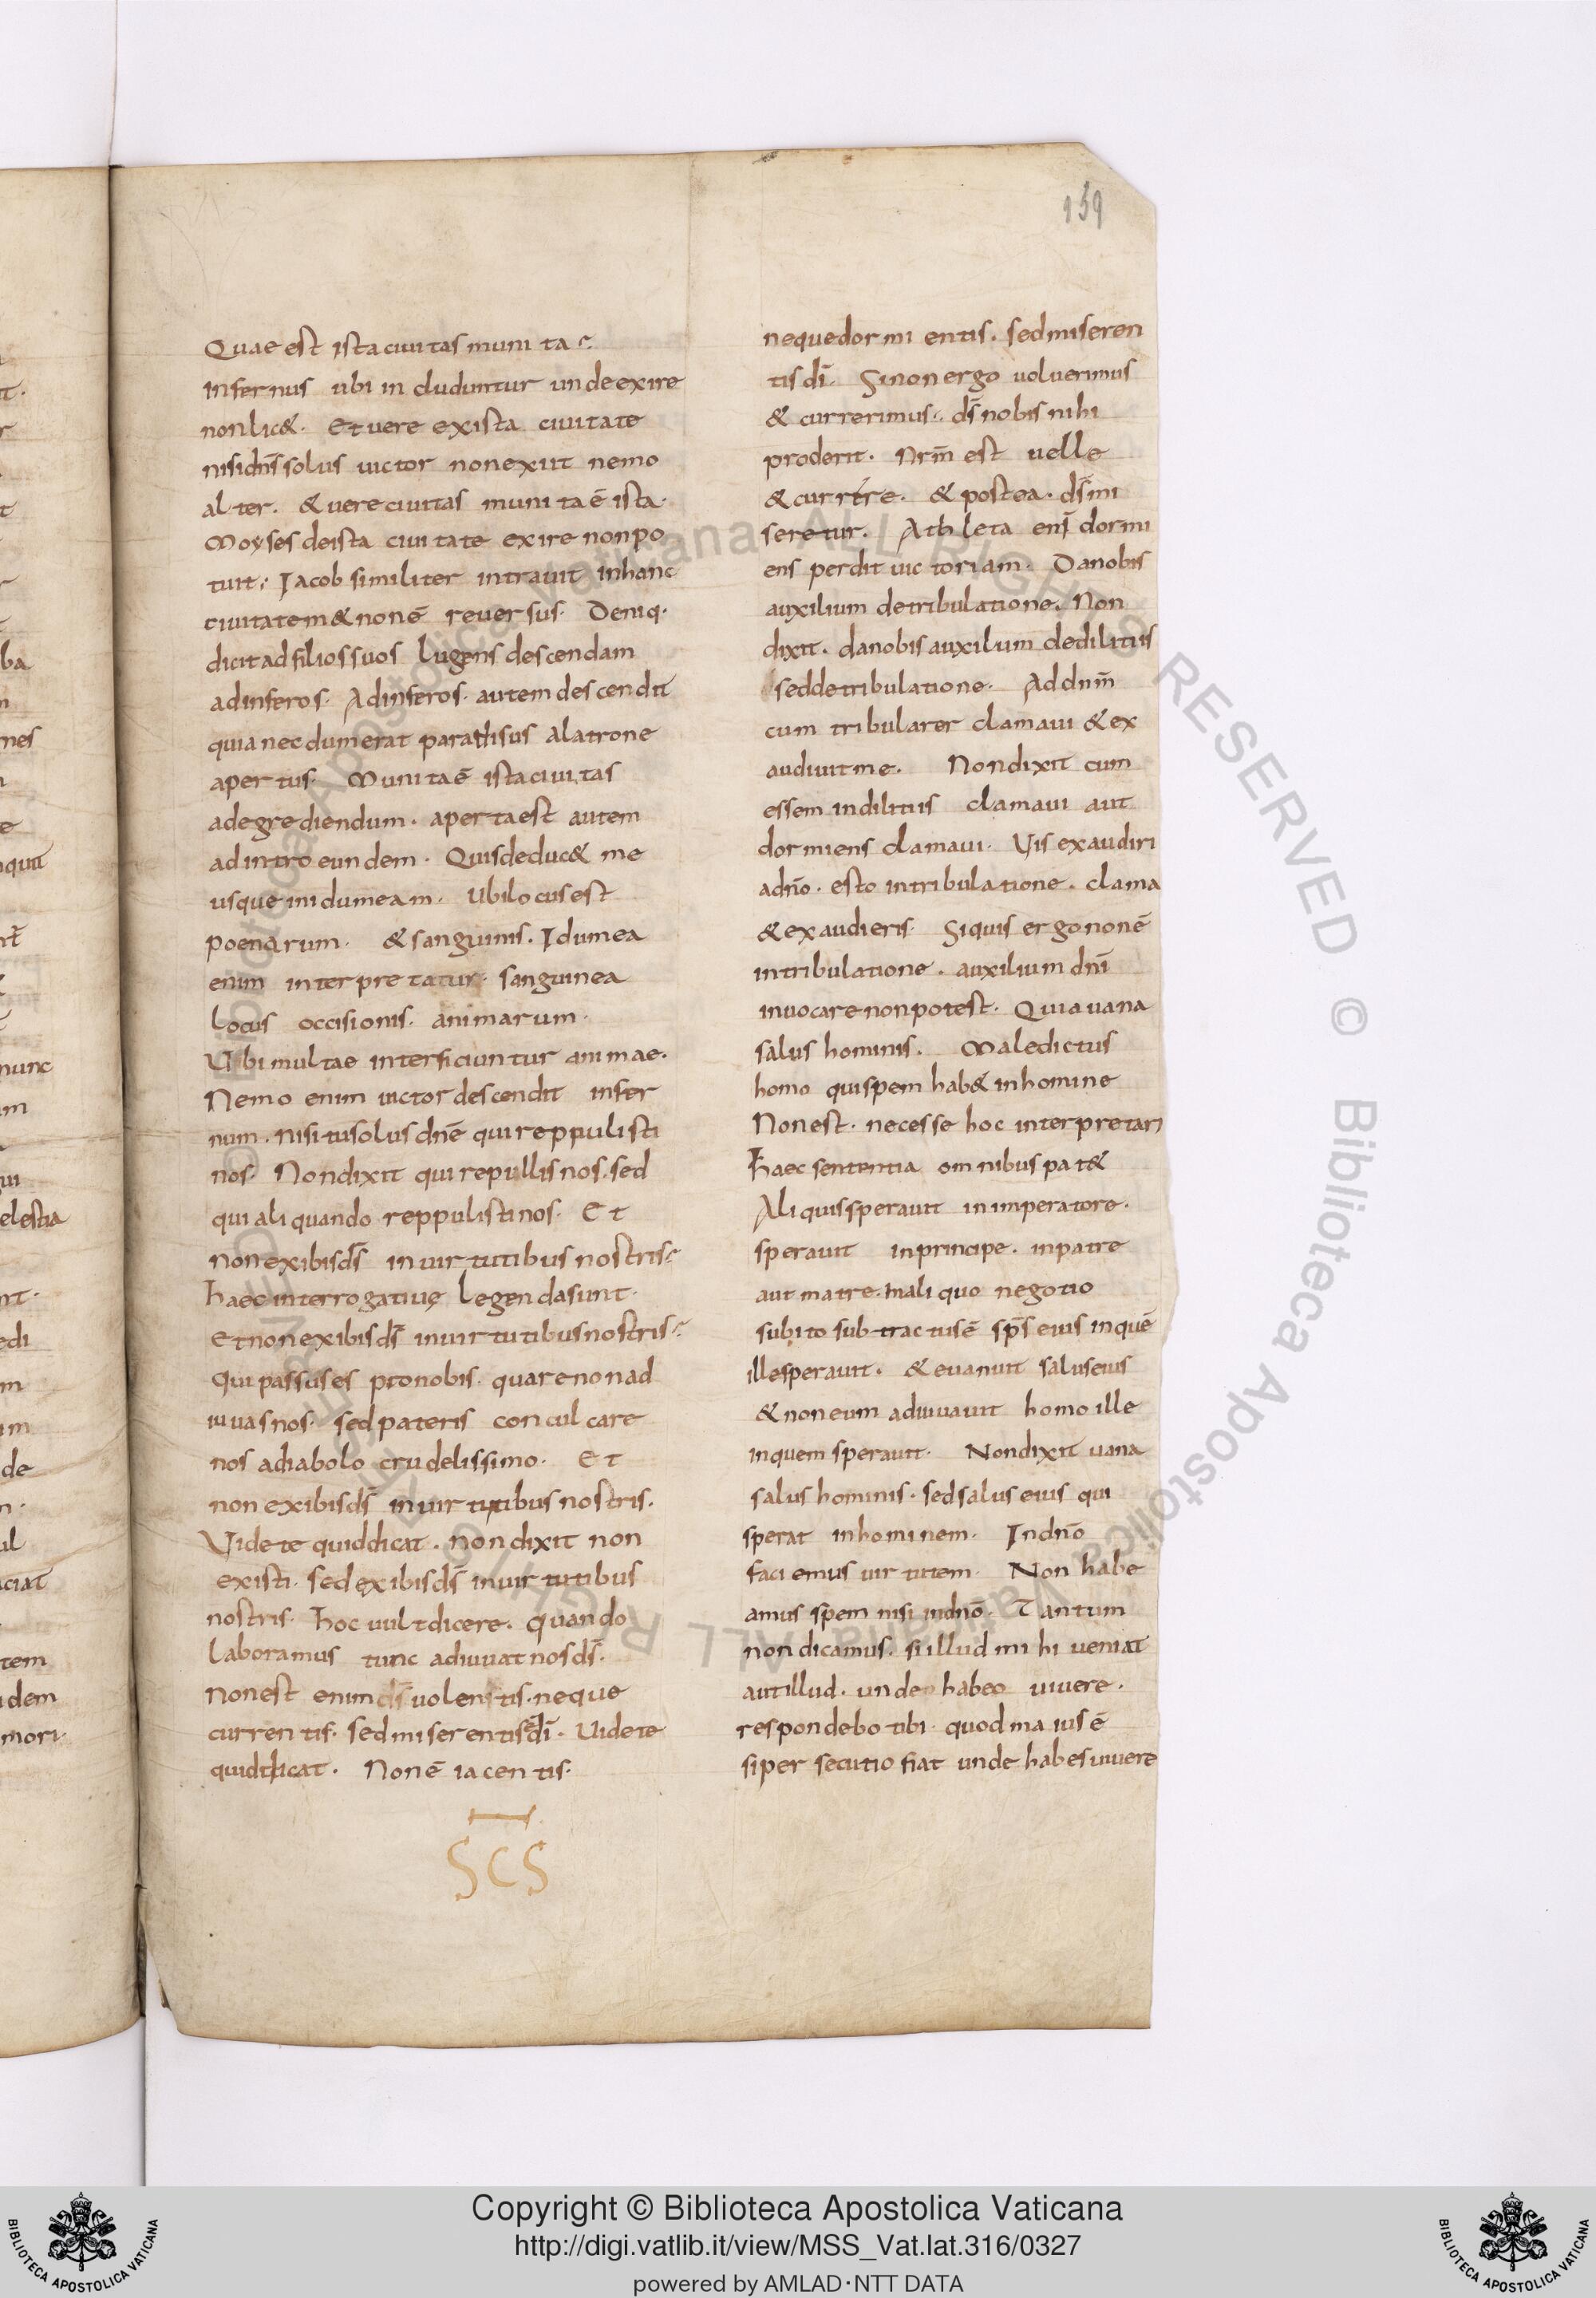 159
Quae est ista ciuitas munita?
Infernus ubi includuntur unde exire
non lic&. Et uere ex ista ciuitate
nisi dns̄ solus uictor non exiit nemo
alter. & uere ciuitas munita ē ista.
Moyses de ista ciuitate exire non po
tuit; Iacob similiter intrauit in hanc
ciuitatem & non ē reuersus. Deniq.
dicit ad filios suos lugens descendam
ad inferos. Ad inferos. autem descendit
quia nec dum erat paradisus a latrone
apertus. Munita ē ista ciuitas
ad egrediendum. aperta est autem
ad introeundem. Quis deduc& me
usque in idumeam. Ubi locus est
poenarum. & sanguinis. Idumea
enim interpretatur. sanguinea
locus occisionis. animarum.
Ubi multae interficiuntur animae.
Nemo enim uictor descendit infer
num. nisi tu solus dnē qui reppulisti
nos. Non dixit qui repullis nos. sed
qui aliquando reppulisti nos. Et
non exibis ds̄ in uirtutibus nostris?
haec interrogatiuę legenda sunt.
Et non exibis ds̄ in uirtutibus nostris?
Qui passus es pro nobis. quare non ad
iuuas nos. sed pateris conculcare
nos a diabolo crudelissimo. Et
non exibis ds̄ in uirtutibus nostris.
Videte quid dicat. non dixit non
existi. sed exibis ds̄ in uirtutibus
nostris. hoc uult dicere. quando
laboramus tunc adiuuat nos ds̄.
Non est enim ds̄ uolentis. neque
currentis. sed miserentis dī. Uidete
quid dicat. Non ē iacentis.
SCS
neque dormientis. sed miseren
tis dī. Si non ergo uoluerimus
& currerimus. ds̄ nobis nihi
proderit. Nrm̄ est uelle
& currere. & postea. ds̄ mi
seretur. Athleta eni dormi
ens perdit uictoriam. Da nobis
auxilium de tribulatione. Non
dixit. da nobis auxilum de dilitiis
sed de tribulatione. Ad dnm̄
cum tribularer clamaui & ex
audiuit me. Non dixit cum
essem in dilitiis clamaui aut
dormiens clamaui. Vis exaudiri
a dnō. esto in tribulatione. clama
& exaudieris. Si quis ergo non ē
in tribulatione. auxilium dnī
inuocare non potest. Quia uana
salus hominis. Maledictus
homo qui spem hab& in homine
Non est. necesse hoc interpretari
haec sententia omnibus pat&
Aliquis sperauit in imperatore.
sperauit in principe. in patre
aut matre. in aliquo negotio
subito subtractus ē sps̄ eius in quē
ille sperauit. & euanuit salus eius
& non eum adiuuauit homo ille
in quem sperauit. Non dixit uana
salus hominis. sed salus eius qui
sperat in hominem. In dnō
faciemus uirtutem. Non habe
amus spem nisi in dnō. Tantum
non dicamus. si illud mihi ueniat
aut illud. unde habeo uiuere.
respondebo tibi. quod maius ē
si persecutio fiat unde habes uiuere
ALL RIGHTS RESERVED © Biblioteca Apostolica Vaticana
Copyright © Biblioteca Apostolica Vaticana
http://digi.vatlib.it/view/MSS_Vat.lat.316/0327
powered by AMLAD·NTT DATA
BIBLIOTECA APOSTOLICA VATICANA
BIBLIOTECA APOSTOLICA VATICANA